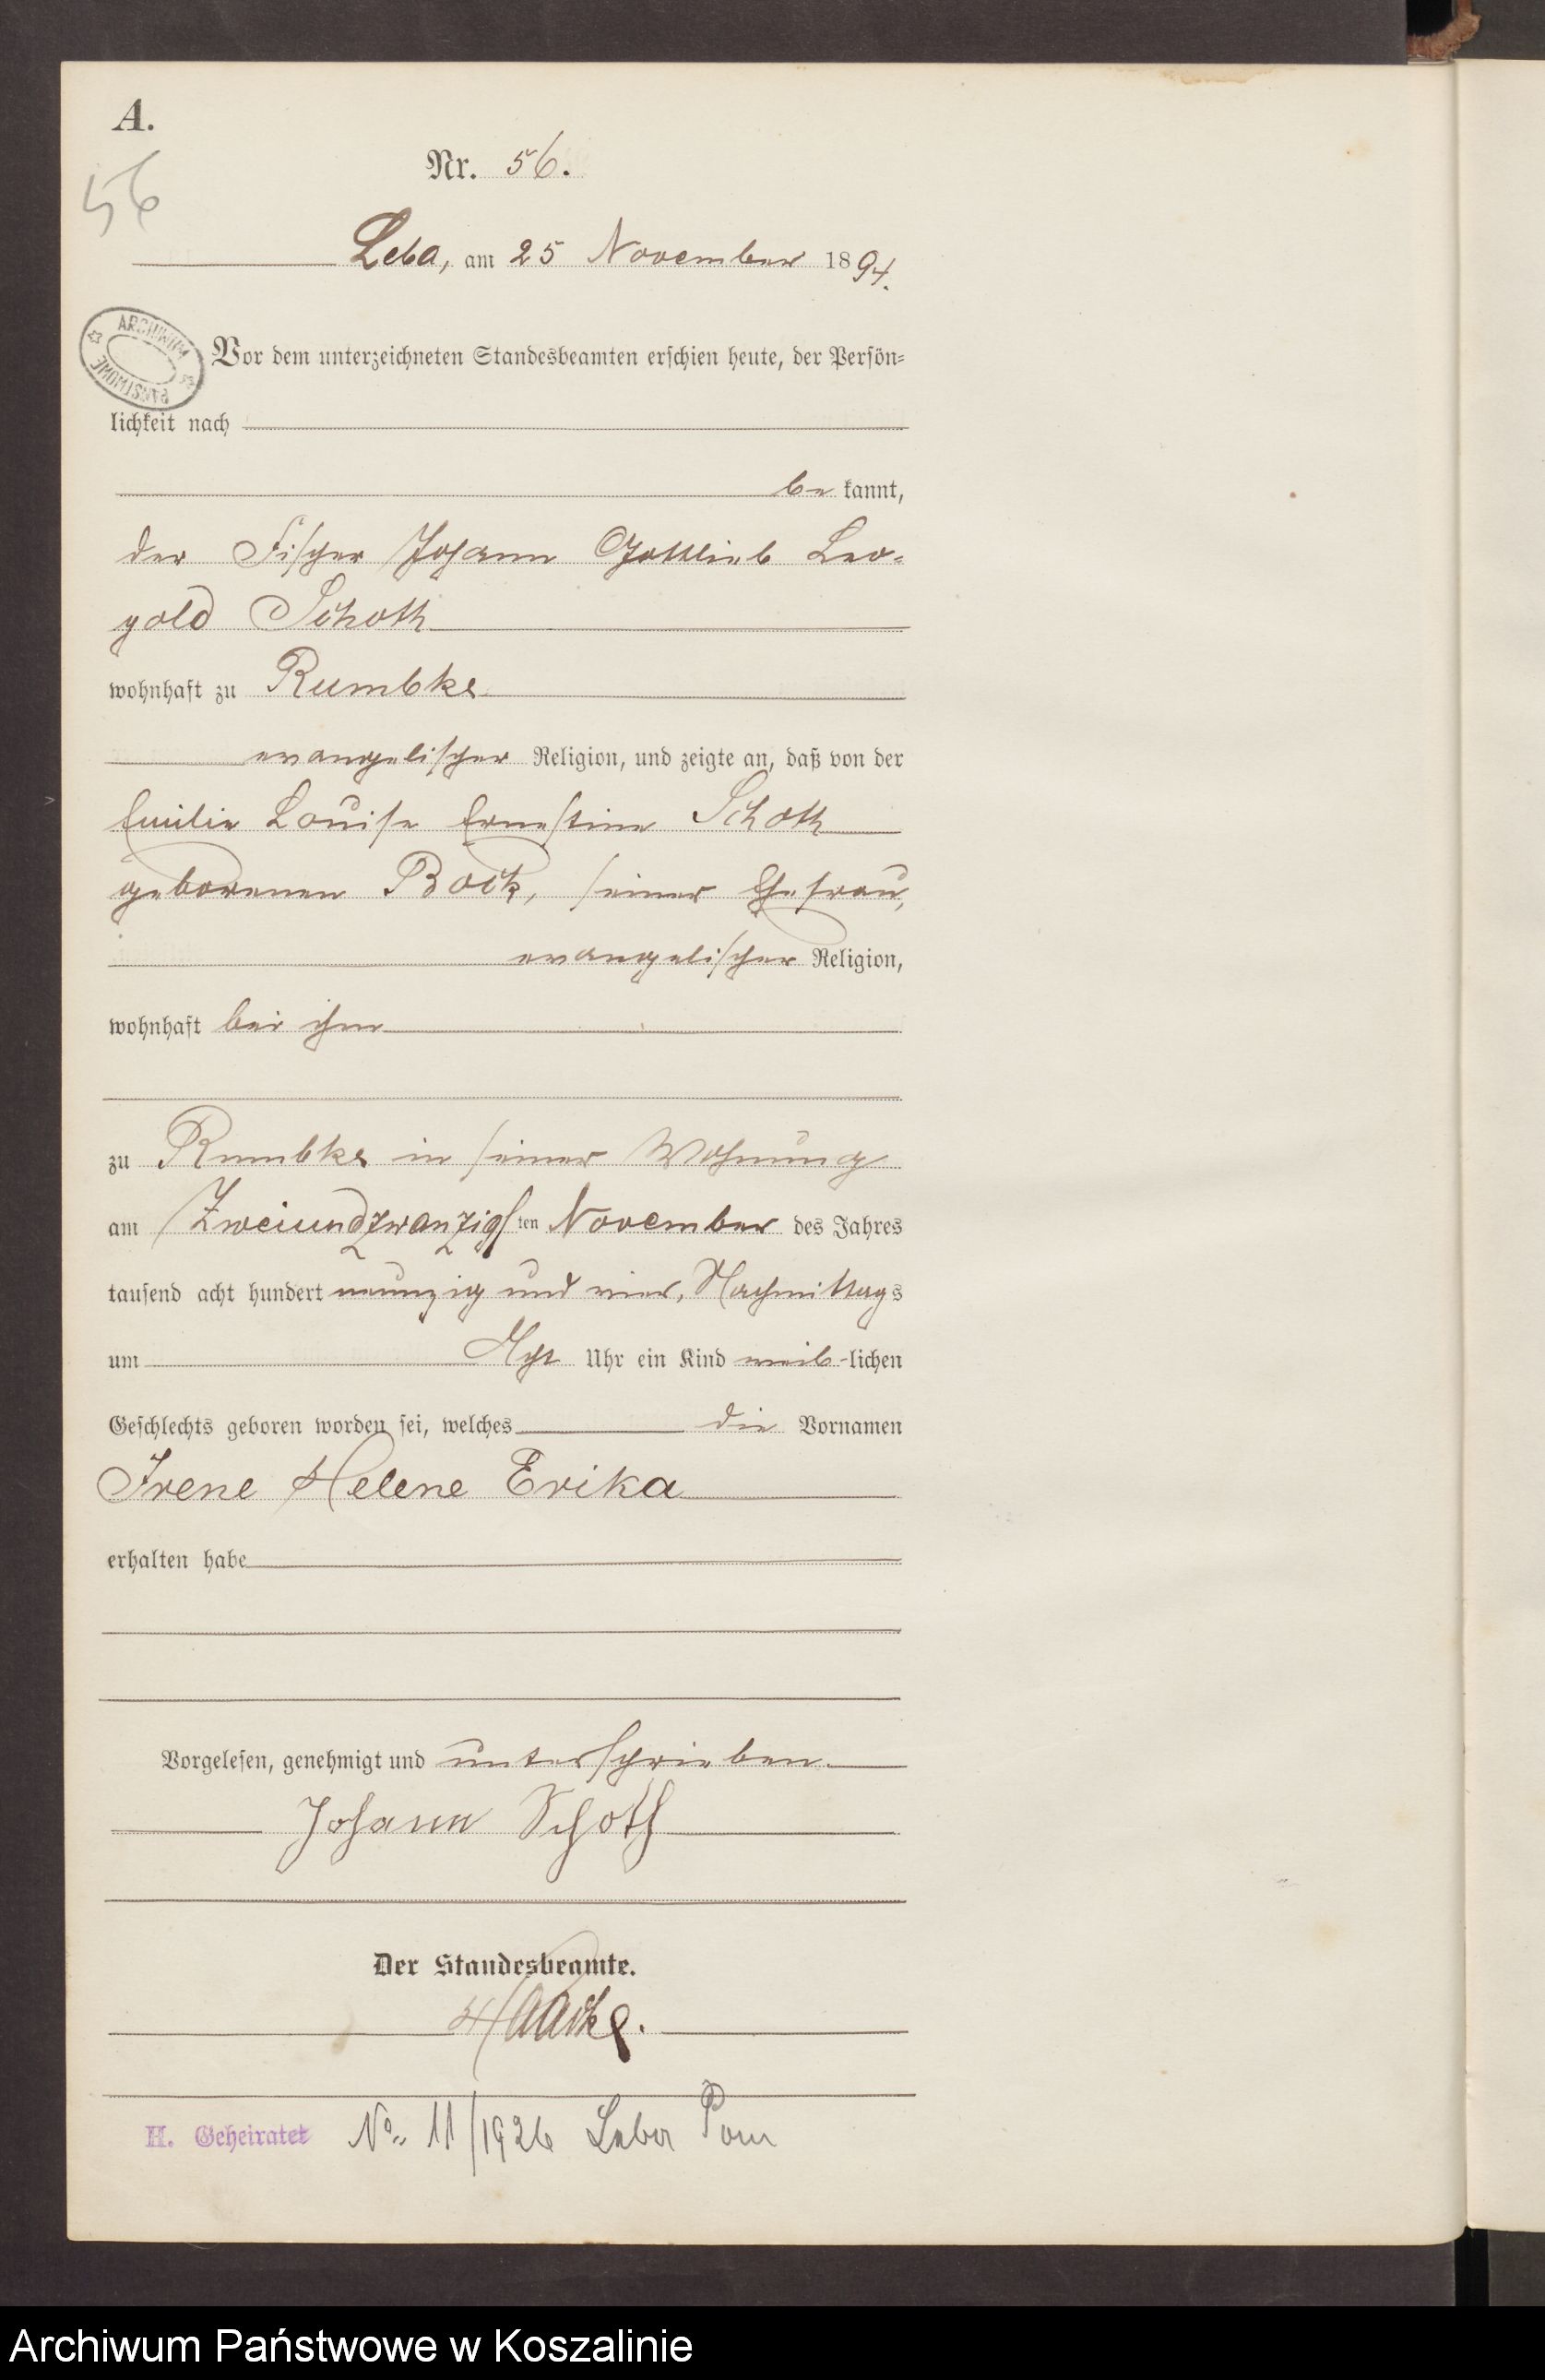 A.
56
Nr. 56.
Leba, am 25 November 1894.
ARCHIWUM PAŃSTWOWE
Vor dem unterzeichneten Standesbeamten erschien heute, der Persön=
lichkeit nach
be kannt,
der Fischer Johann Gottlieb Leo-
pold Schoth
wohnhaft zu Rumbke
evangelischer Religion, und zeigte an, daß von der
Emilie Louise Ernestine Schoth
geborenen Bock, seiner Ehefrau,
evangelischer Religion,
wohnhaft bei ihm
zu Rumbke in seiner Wohnung
am Zweiundzwanzigsten November des Jahres
tausend acht hundert neunzig und vier, Nachmittags
um Acht Uhr ein Kind weib-lichen
Geschlechts geboren worden sei, welches die Vornamen
Irene Helene Erika
erhalten habe
Vorgelesen, genehmigt und unterschrieben.
Johann Schoth
Der Standesbeamte.
Haacke.
H. Geheiratet No. 11/1926 Leba Pom
Archiwum Państwowe w Koszalinie